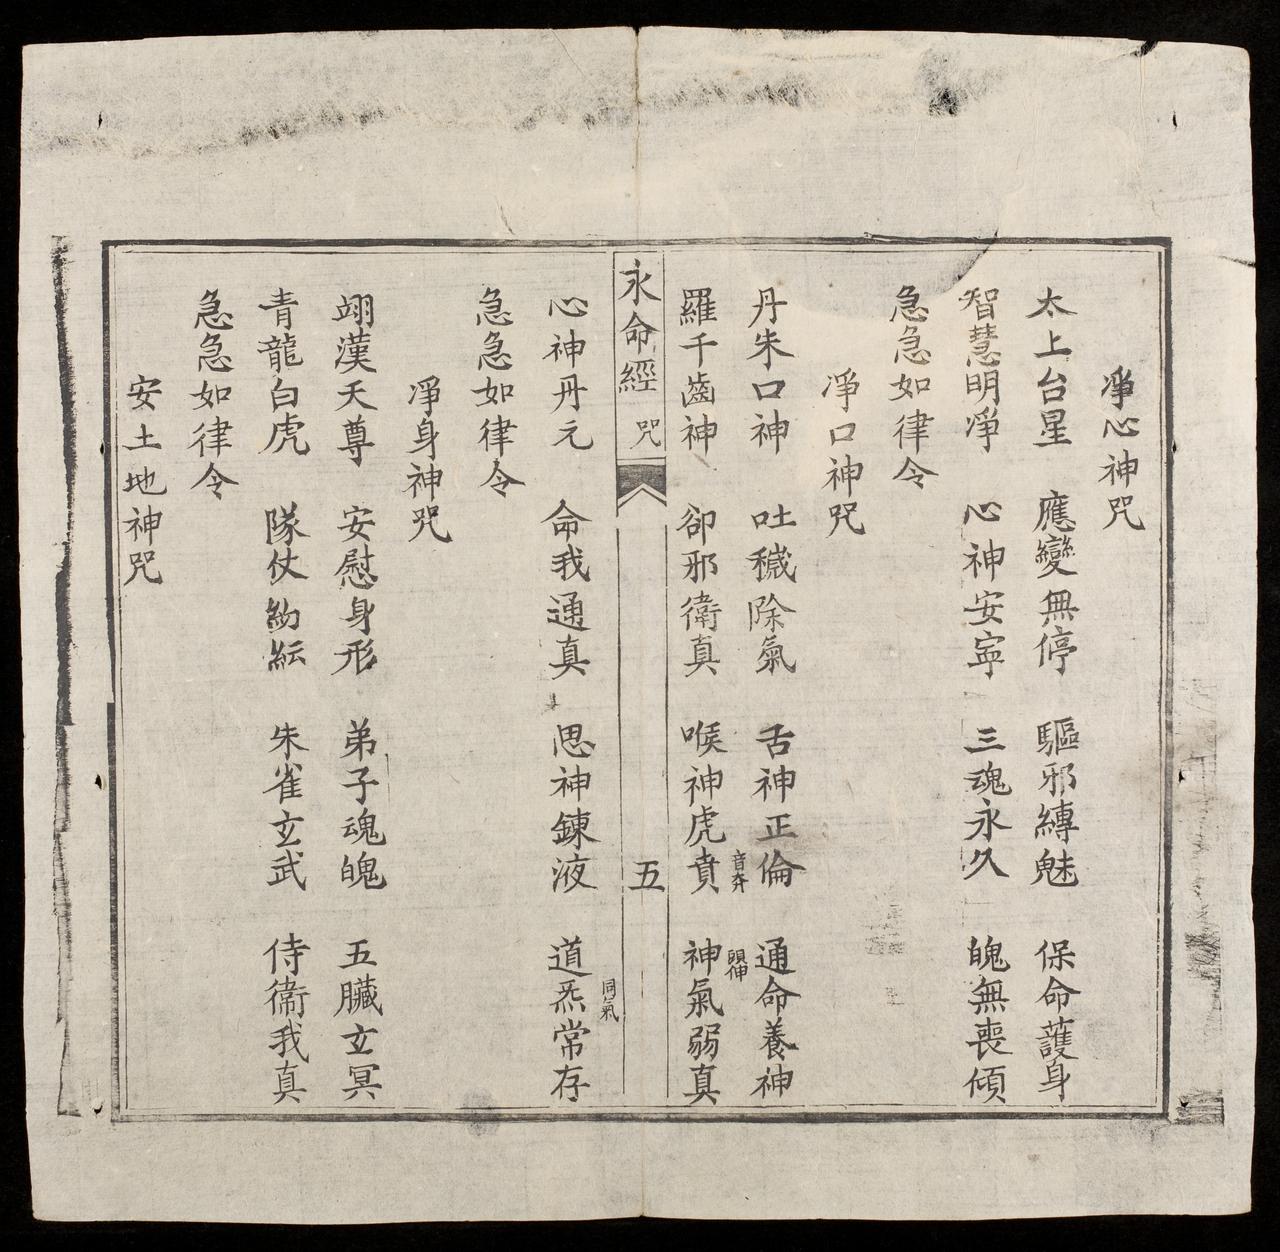 淨心神咒
太上台星 應變無停 驅邪縛魅 保命護身
智慧明淨 心神安寧 三魂永久 魄無喪傾
急急如律令
淨口神咒
丹朱口神 吐穢除氣 舌神正倫 通命養神
羅千齒神 卻邪衛真 喉神虎賁 神氣弱真
音奔
永命經 咒
五
心神丹元 命我通真 思神鍊液 道炁常存
同氣
急急如律令
淨身神咒
翊漢天尊 安慰身形 弟子魂魄 五臟玄冥
青龍白虎 隊仗紛紜 朱雀玄武 侍衞我真
急急如律令
安土地神咒